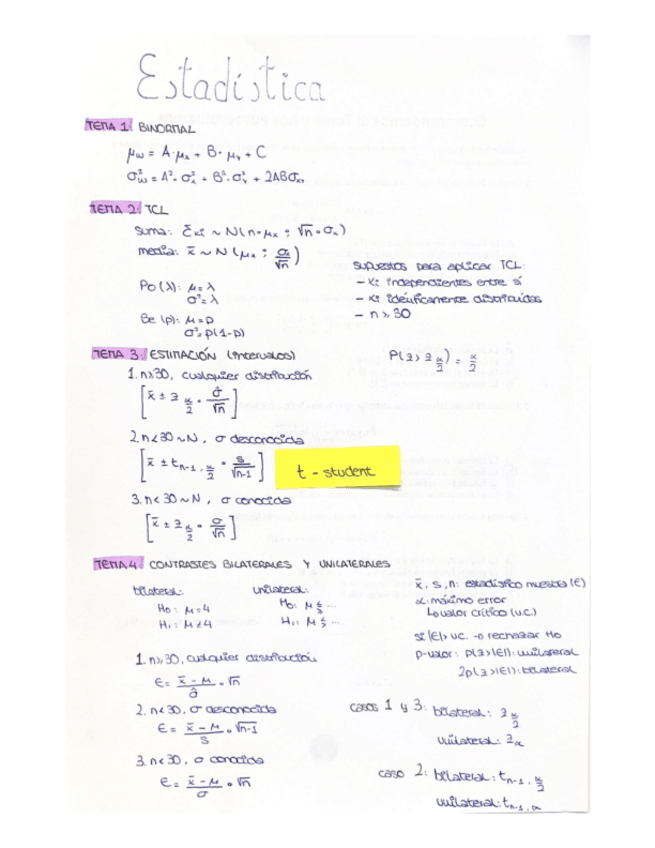 Estadística
TEMA 1: BINORMAL
μw = A·μx + B·μy + C
σ²w = A²·σ²x + B²·σ²y + 2ABσxy
TEMA 2: TCL
suma: Σxi ~ N(n·μx ; √n·σx)
media: x̄ ~ N(μx ; σx/√n)
Supuestos para aplicar TCL:
- xi independientes entre sí
- xi idénticamente distribuidas
- n ≥ 30
Po(λ): μ=λ
σ²=λ
Be(p): μ=p
σ²=p(1-p)
TEMA 3: ESTIMACIÓN (Intervalos)
P(z > z α/2) = α/2
1. n≥30, cualquier distribución
[x̄ ± z α/2 · σ̂/√n]
2. n<30 ~N, σ desconocida
[x̄ ± t n-1, α/2 · s/√n-1]
t - student
3. n<30 ~N, σ conocida
[x̄ ± z α/2 · σ/√n]
TEMA 4: CONTRASTES BILATERALES Y UNILATERALES
bilateral:
H0: μ=4
H1: μ≠4
unilateral:
H0: μ ≤ ...
H1: μ > ...
x̄, s, n: estadístico muestra (E)
α: máximo error
↳ valor crítico (v.c.)
si |E| > v.c. → rechazar H0
p-valor: p(z>|E|): unilateral
2p(z>|E|): bilateral
1. n≥30, cualquier distribución
E = x̄ - μ / σ̂ · √n
2. n<30, σ desconocida
E = x̄ - μ / s · √n-1
3. n<30, σ conocida
E = x̄ - μ / σ · √n
casos 1 y 3: bilateral: z α/2
unilateral: z α
caso 2: bilateral: t n-1, α/2
unilateral: t n-1, α